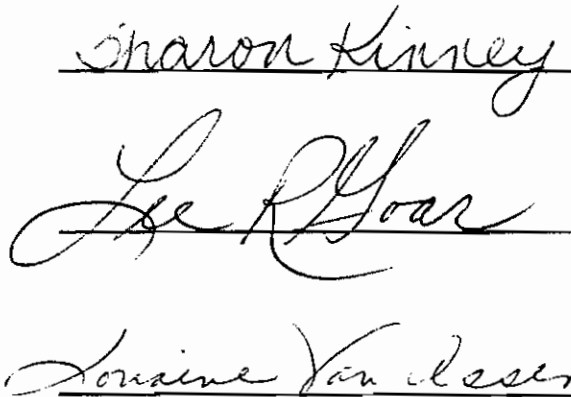 Sharon Kinney
Lee R Goar
Lorraine Van Essen